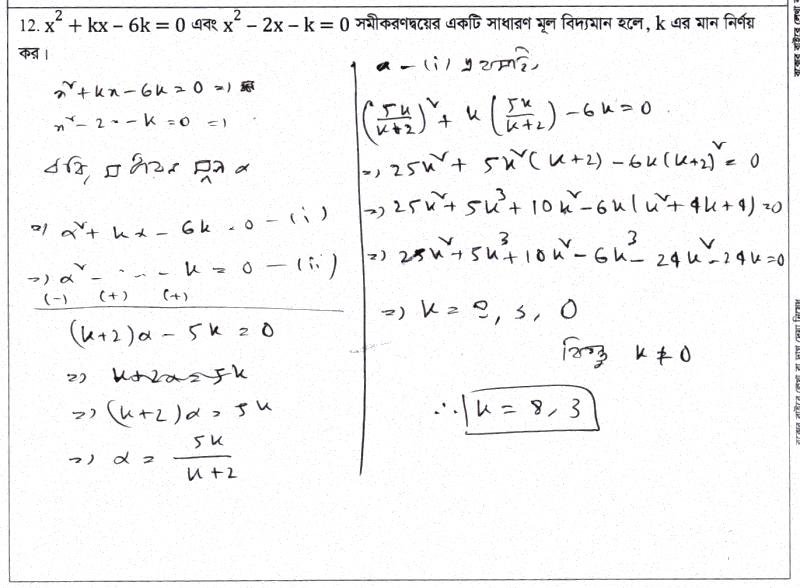 12. x² + kx − 6k = 0 এবং x² − 2x − k = 0 সমীকরণদ্বয়ের একটি সাধারণ মূল বিদ্যমান হলে, k এর মান নির্ণয়
কর।
x² + kx − 6k = 0 ⇒
x² − 2 - - k = 0 ⇒
ধরি, মূল α
⇒ α² + kα − 6k = 0 − (i)
⇒ α² − - - - k = 0 − (ii)
(−) (+) (+)
(k+2)α − 5k = 0
⇒ k+2α = 5k
⇒ (k+2)α = 5k
⇒ α = 5k/(k+2)
α − (i) এ বসাই,
(5k/(k+2))² + k (5k/(k+2)) − 6k = 0
⇒ 25k² + 5k²(k+2) − 6k(k+2)² = 0
⇒ 25k² + 5k³ + 10k² − 6k(k² + 4k + 4) = 0
⇒ 25k² + 5k³ + 10k² − 6k³ − 24k² − 24k = 0
⇒ k = ৪, ৩, 0
কিন্তু k ≠ 0
∴ k = 8, 3